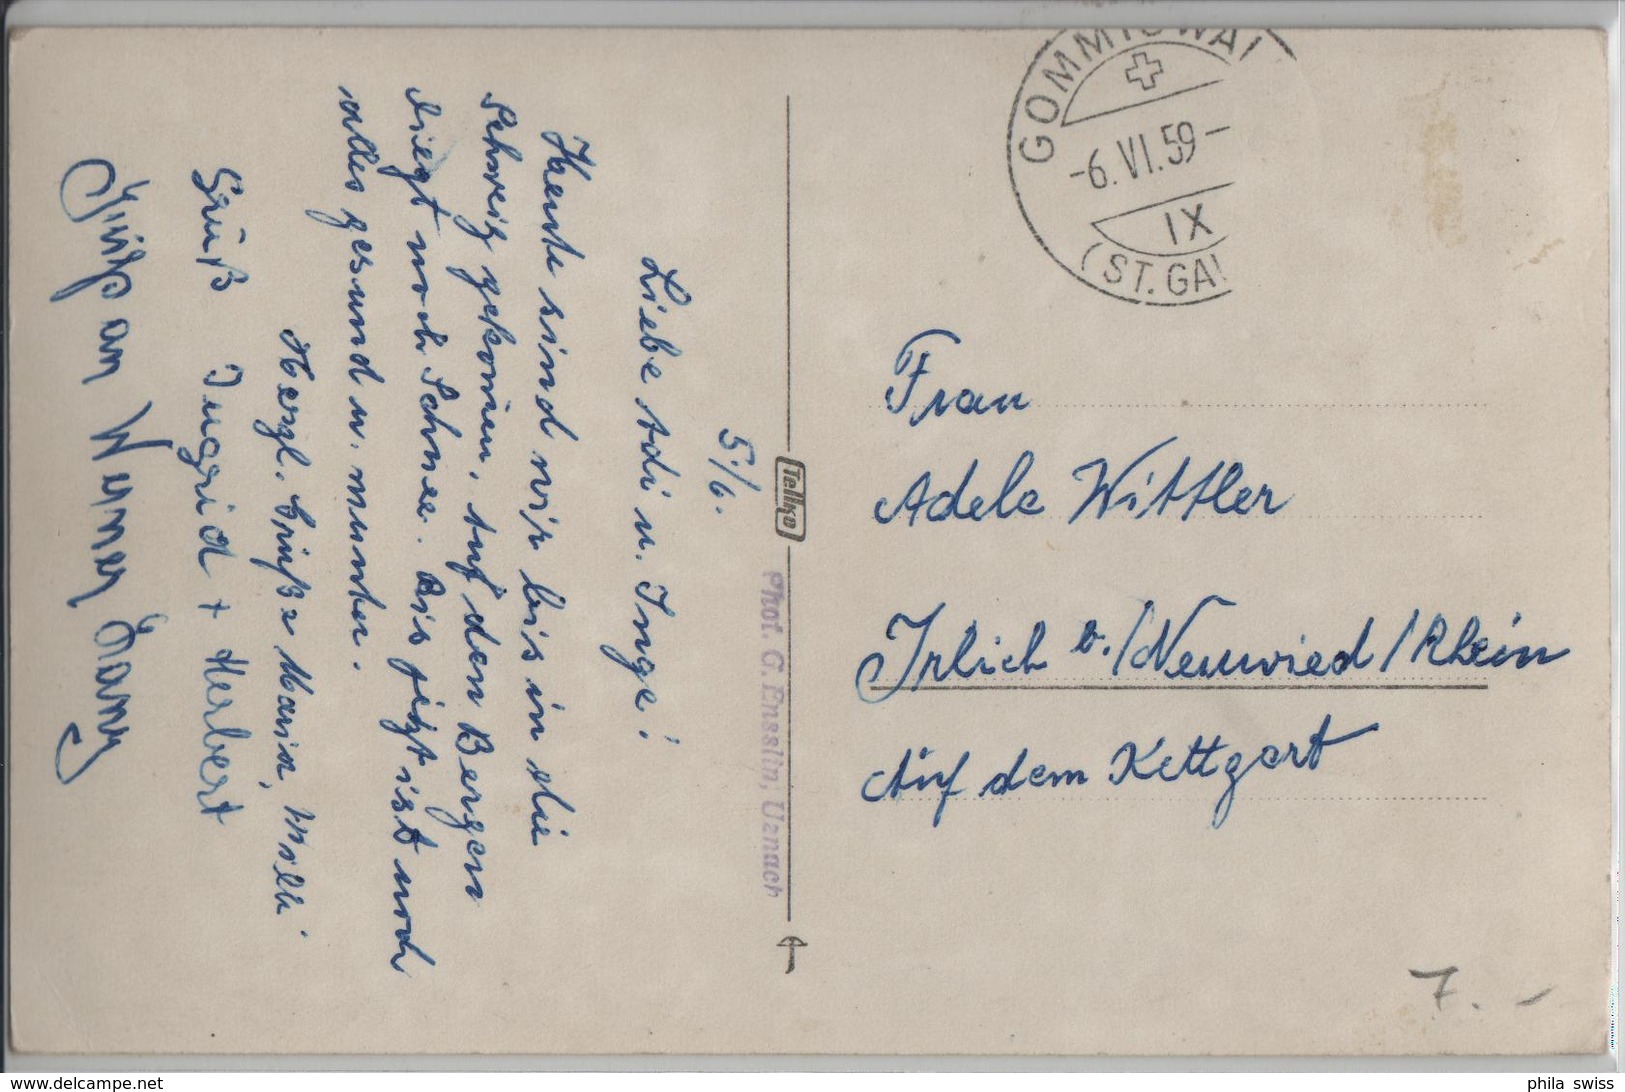 GOMMISWAL
-6. VI. 59-
IX
(ST. GAL
5./6.
Liebe Adi u. Inge!
Heute sind wir bis in die
Schweiz gekommen. Auf den Bergen
liegt noch Schnee. Bis jetzt ist noch
alles gesund u. munter.
Herzl. Grüße Maria, Willi
Gruß Ingrid + Herbert
Grüße an Werner
Tellko
Phot. G. Ensslin, Uznach
Frau
Adele Wittler
Irlich b./Neuwied/Rhein
Auf dem Kettgert
7.-
phila swiss